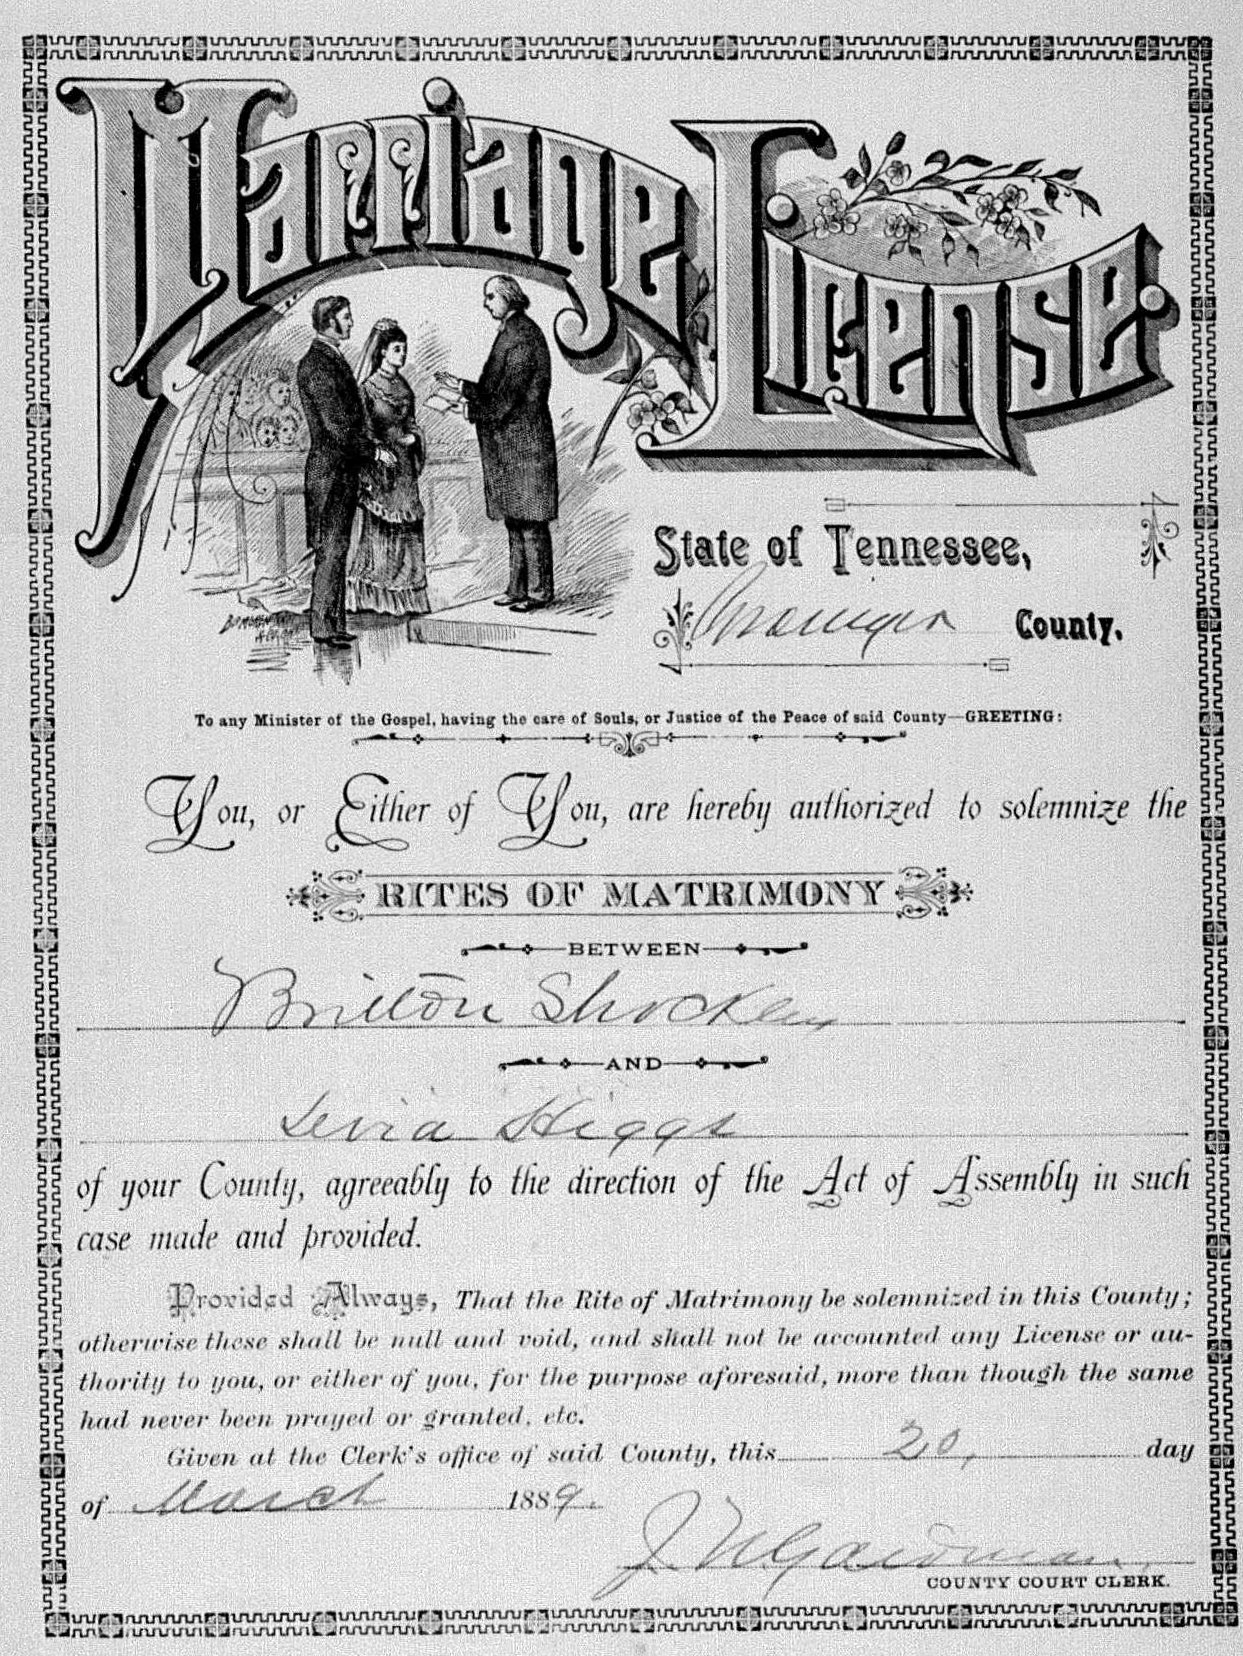 Marriage License.
State of Tennessee,
Grainger County.
To any Minister of the Gospel, having the care of Souls, or Justice of the Peace of said County—GREETING:
You, or Either of You, are hereby authorized to solemnize the
RITES OF MATRIMONY
BETWEEN
Britton Shockley
AND
Levia Higgs
of your County, agreeably to the direction of the Act of Assembly in such
case made and provided.
Provided Always, That the Rite of Matrimony be solemnized in this County;
otherwise these shall be null and void, and shall not be accounted any License or au-
thority to you, or either of you, for the purpose aforesaid, more than though the same
had never been prayed or granted, etc.
Given at the Clerk's office of said County, this 20, day
of March 1889.
COUNTY COURT CLERK.